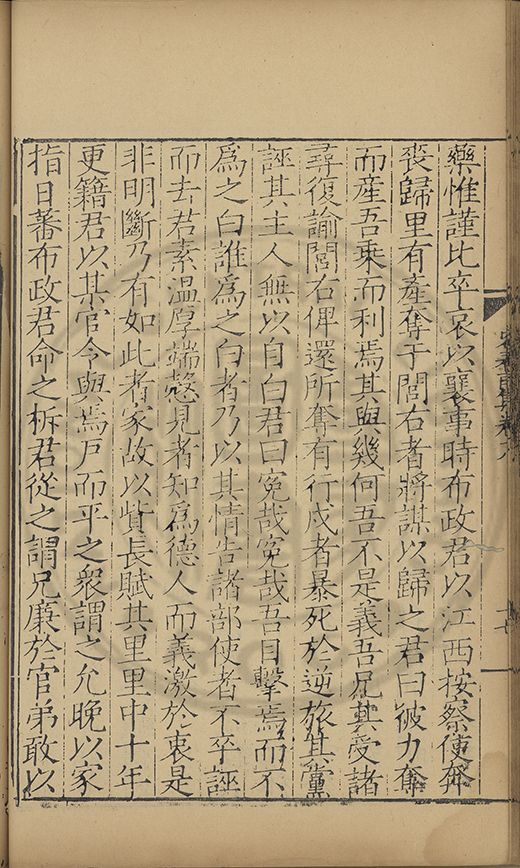 藥惟謹比卒哀以襄事時布政君以江西按察使奔
喪歸里有產奪于閭右者將謀以歸之君曰彼力奪
而產吾乗而利焉其與幾何吾不是義吾兄其受諸
尋復諭閭右俾還所奪有行戍者暴死於逆旅其黨
誣其主人無以自白君曰寃哉寃哉吾目擊焉而不
爲之白誰爲之白者乃以其情告諸部使者不卒誣
而去君素溫厚端慤見者知爲德人而義激於衷是
非明斷乃有如此者家故以貲長賦其里里中十年
更籍君以某官令與焉戸而平之衆謂之允晚以家
指日蕃布政君命之柝君從之謂兄廉於官弟敢以